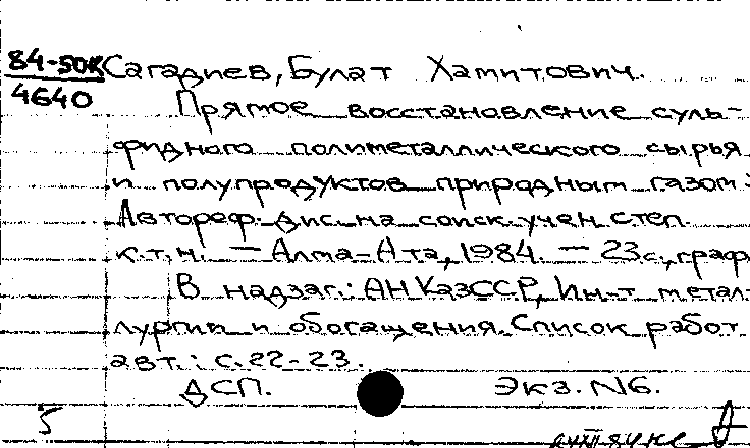 84-50к Сагадиев, Булат Хамитович.
4640 Прямое восстановление суль-
фидного полиметаллического сырья
и полупродуктов природным газом:
Автореф. дис. на соиск. учен. степ.
к.т.н. — Алма-Ата, 1984. — 23 с., граф.
В надзаг.: АН КазССР, Ин-т метал-
лургии и обогащения. Список работ
авт.: с. 22-23.
ДСП. Экз. №6.
5